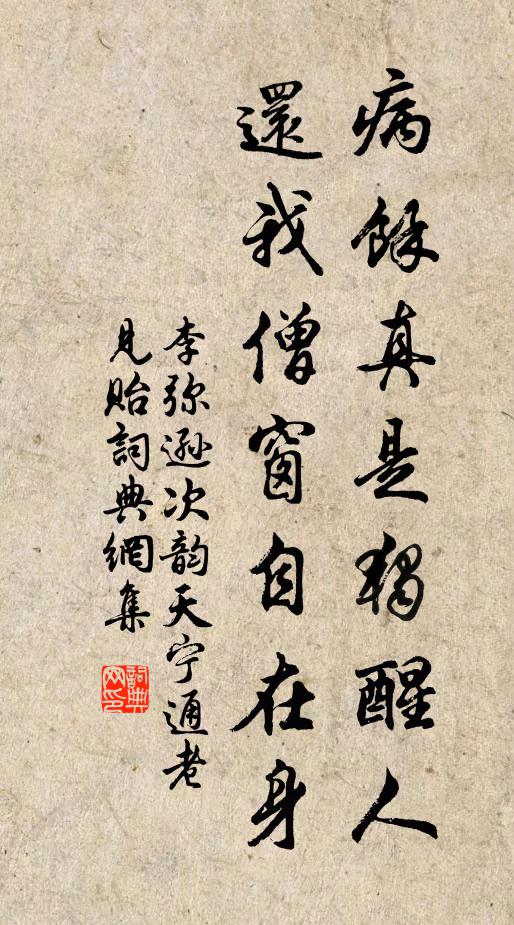 病餘真是獨醒人
還我僧窗自在身
李弥遜次韵天宁通老
見貽詞典網集
詞典
网印